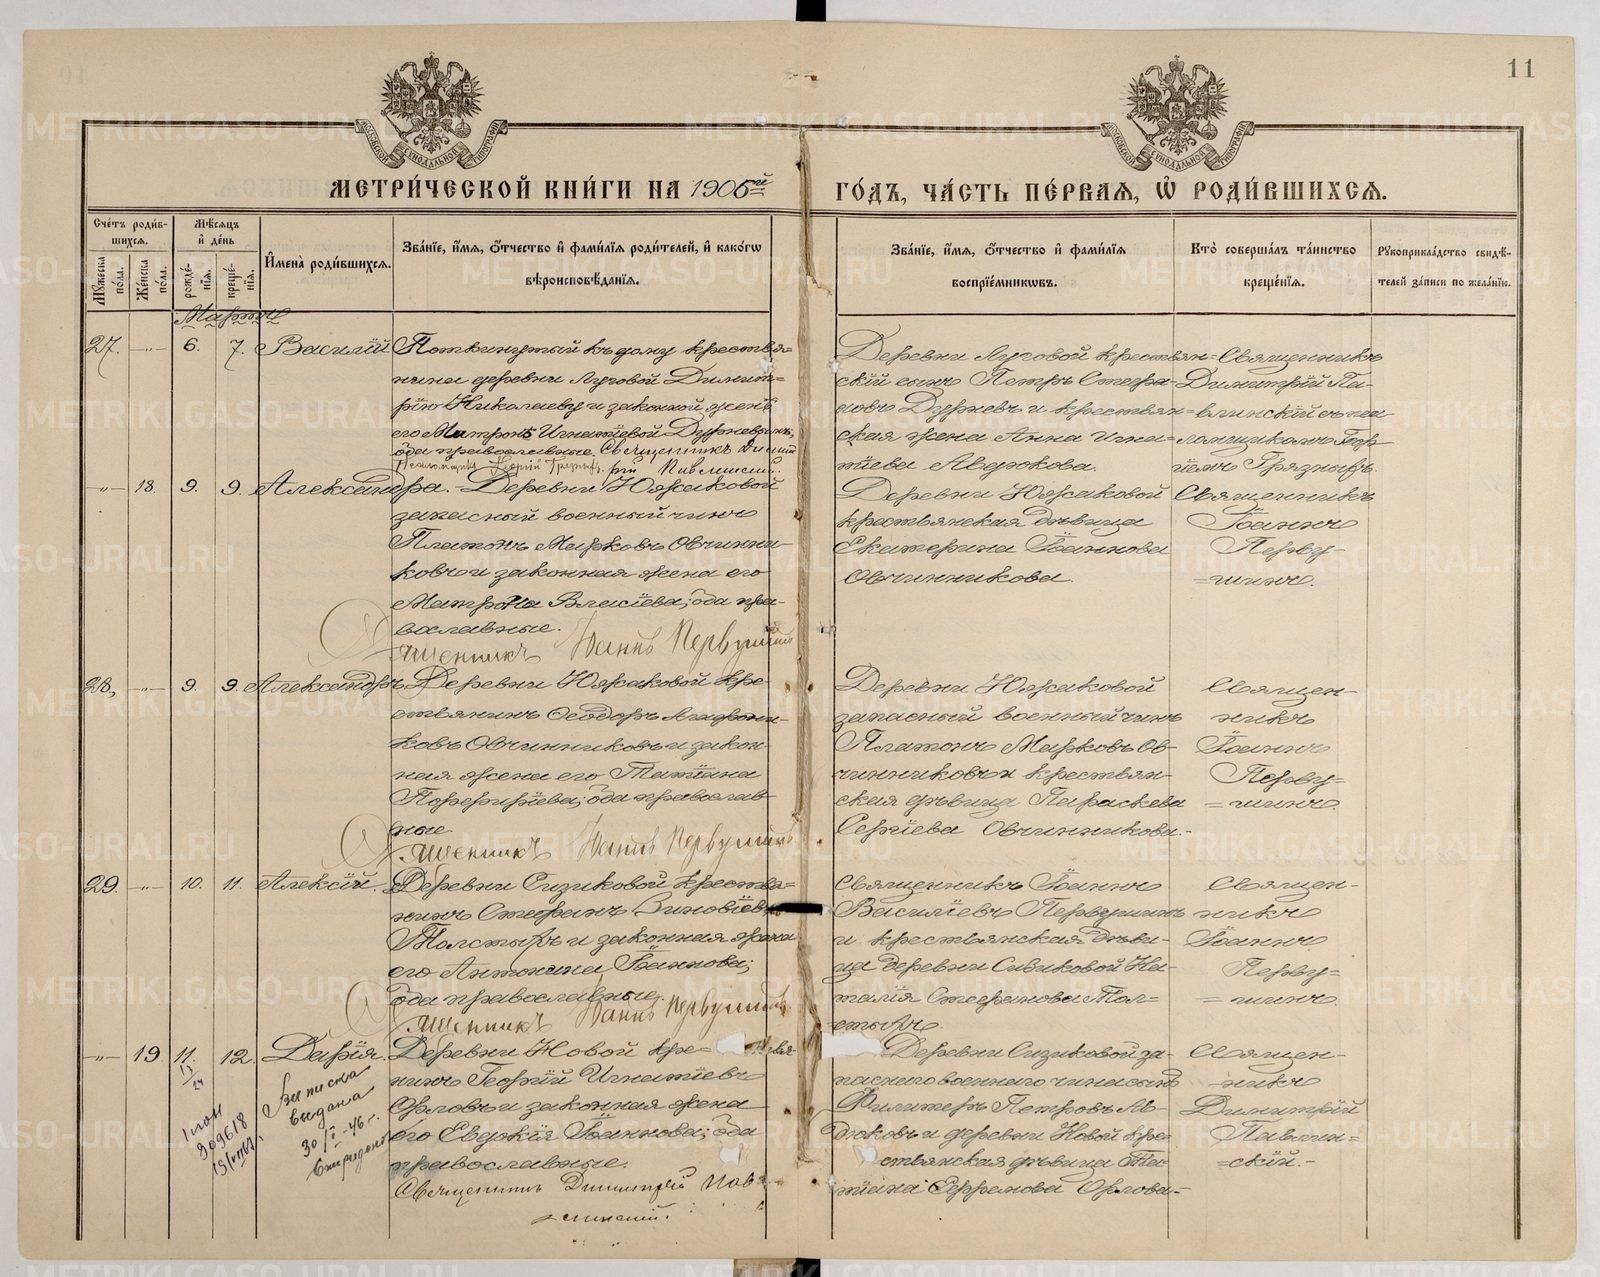 11
МОСКОВСКОЙ СѴНОДАЛЬНОЙ ТИПОГРАФІИ
МОСКОВСКОЙ СѴНОДАЛЬНОЙ ТИПОГРАФІИ
МЕТРИ́ЧЕСКОЙ КНИ́ГИ НА 1906й
ГО́ДЪ, ЧА́СТЬ ПЕ́РВАѦ, Ѡ҆ РОДИ́ВШИХСѦ.
Сче́тъ роди́в-
шихсѧ.
Мꙋжеска по́ла.
Же́нска по́ла.
Мѣ́сѧцъ
и҆ де́нь
рожде́-
нїѧ.
креще́-
нїѧ.
И҆мена̀ роди́вшихсѧ.
Зва́нїе, и҆́мѧ, ѻ҆́тчество и҆ фами́лїѧ роди́телей, и҆ како́гѡ
вѣроисповѣ́данїѧ.
Зва́нїе, и҆́мѧ, ѻ҆́тчество и҆ фами́лїѧ
воспрїе́мникѡвъ.
Кто̀ соверша́лъ та́инство
креще́нїѧ.
Рꙋкоприкла́дство свидѣ́-
телей за́писи по жела́нїю.
Мартъ
27. —„— 6. 7. Василій
Поткинутый къ дому крестья=
нина деревни Луговой Димит=
рію Николаеву и законной женѣ
его Матронѣ Игнатіевой
оба православные. Священникъ Димит
рій Павлинскій.
Деревни Луговой крестьян=
скій сынъ Петръ Стефа-
новъ и крестьян=
ская жена Анна Игна=
тіева
Священникъ
Димитрій Па-
влинскій съ пса
ломщикомъ Геор
гіемъ Грязныхъ.
—„— 18. 9. 9. Александра.
Деревни Южаковой
запасный военный чинъ
Платонъ Марковъ Овчинни-
ковъ и законная жена его
Матрона Власіева; оба пра-
вославные.
Священникъ Іоаннъ Первушинъ
Деревни Южаковой
крестьянская дѣвица
Екатерина Іоаннова
Овчинникова.
Священникъ
Іоаннъ
Перву-
=шинъ.
28, —„— 9. 9. Александръ.
Деревни Южаковой кре-
стьянинъ Ѳеодоръ
ковъ Овчинниковъ и закон-
ная жена его Татіана
Порфиріева; оба православ-
ные
Священникъ Іоаннъ Первушинъ
Деревни Южаковой
запасный военный чинъ
Платонъ Марковъ Ов-
чинниковъ и крестьян-
ская дѣвица Параскева
Сергіева Овчинникова.-
Священ-
никъ
Іоаннъ
Перву=
=шинъ.
29. —„— 10. 11. Алексій.
Деревни Сизиковой крестья=
нинъ Стефанъ Зиновіевъ
Толстыхъ и законная жена
его Антонина Іоаннова;
оба православные.
Священникъ Іоаннъ Первушинъ
Священникъ Іоаннъ
Василіевъ Первушинъ
и крестьянская дѣви-
ца деревни Сизиковой На-
талія Стефанова Тол=
стыхъ.
Священ-
никъ
Іоаннъ
Перву=
=шинъ.
—„— 19 11. 12. Дарія.
Выписка
выдана
Деревни Новой кре=
нинъ Георгій Игнатіевъ
Орловъ и законная жена
его Евдокія Іоаннова; оба
православные.
Священникъ Димитрій Пав=
линскій.
Деревни Сизиковой за-
паснаго военнаго чина сынъ
Филиппъ Петровъ
и деревни Новой кре=
стьянская дѣвица Та
тіана Ефремова Орлова-
Священ-
никъ
Димитрій
Павлин=
=скій.-